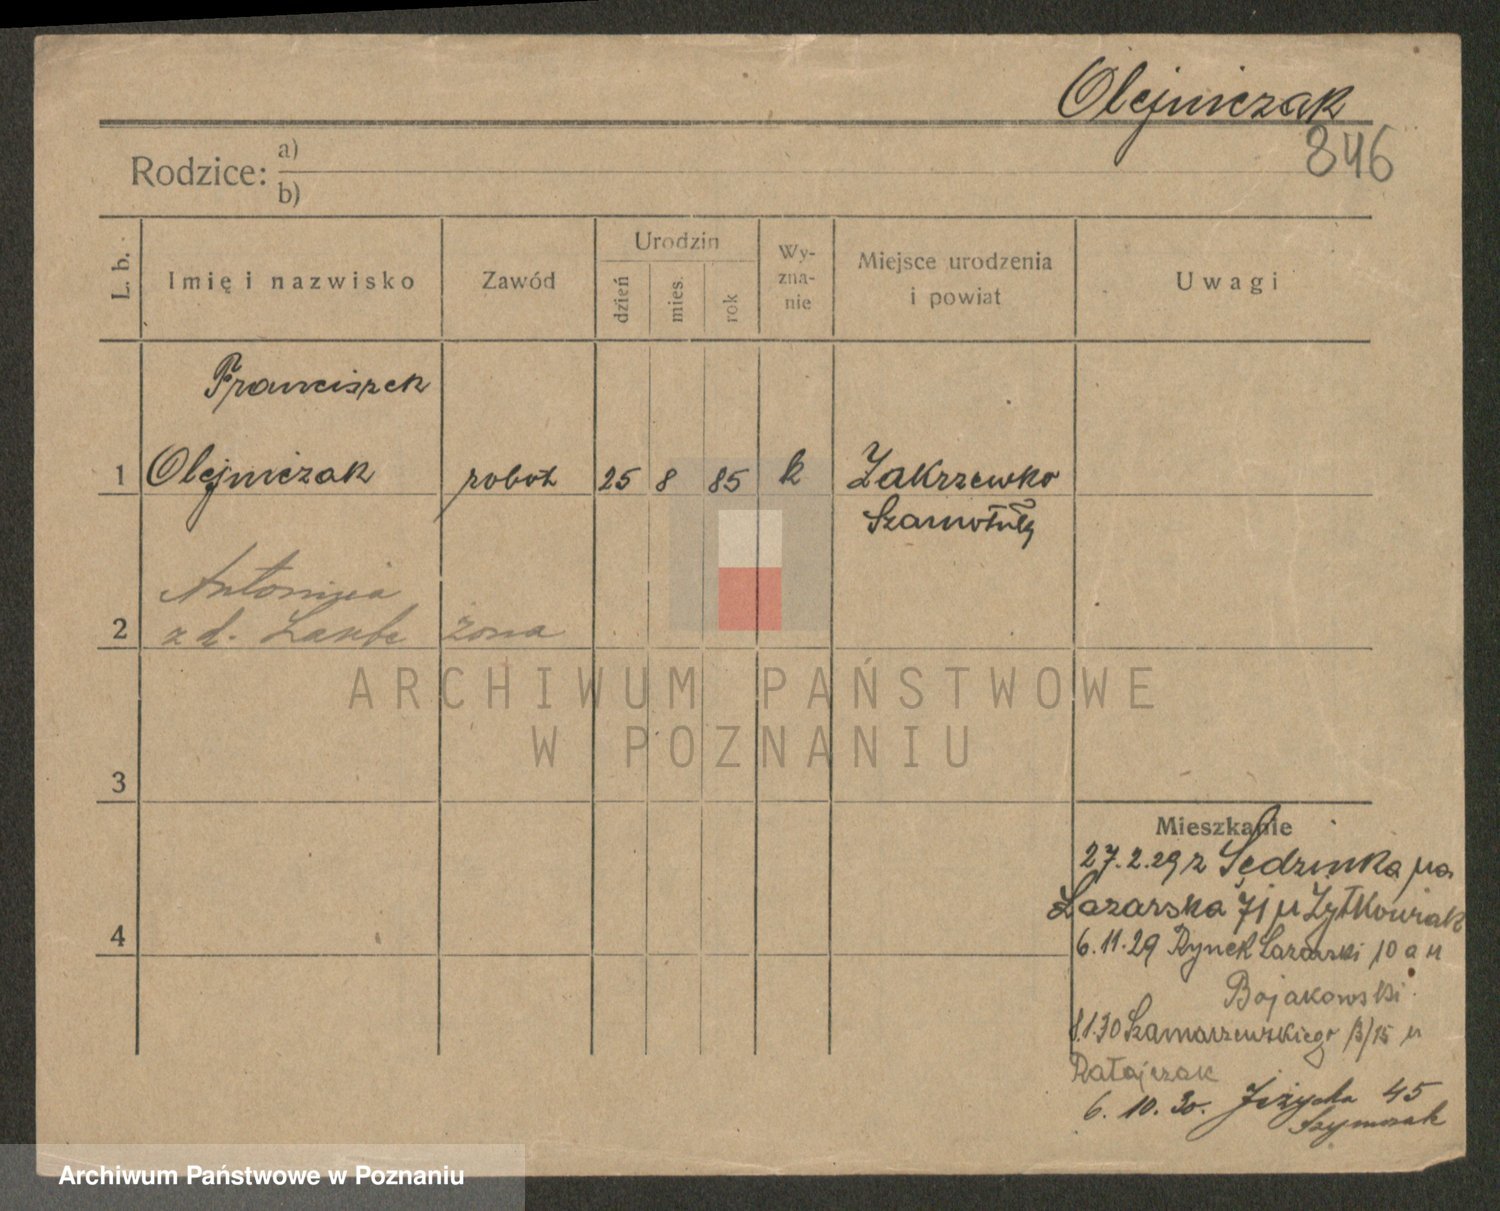 Olejniczak
846
Rodzice: a)
b)
L. b.
Imię i nazwisko
Zawód
Urodzin
dzień
mies.
rok
Wy-
zna-
nie
Miejsce urodzenia
i powiat
Uwagi
Franciszek
1 Olejniczak robot 25 8 85 k Zakrzewko
Szamotuły
Antonina
2 z d. Laube żona
ARCHIWUM PAŃSTWOWE
W POZNANIU
3
4
Mieszkanie
27.2.29 z Sędzinka na
Łazarska 7 u Żyłkowiak
6.11.29 Rynek Łazarski 10 a u
Bojakowski
8.1.30 Szamarzewskiego 13/15 u
Ratajczak
6. 10. 30. 45
Szymczak
Archiwum Państwowe w Poznaniu